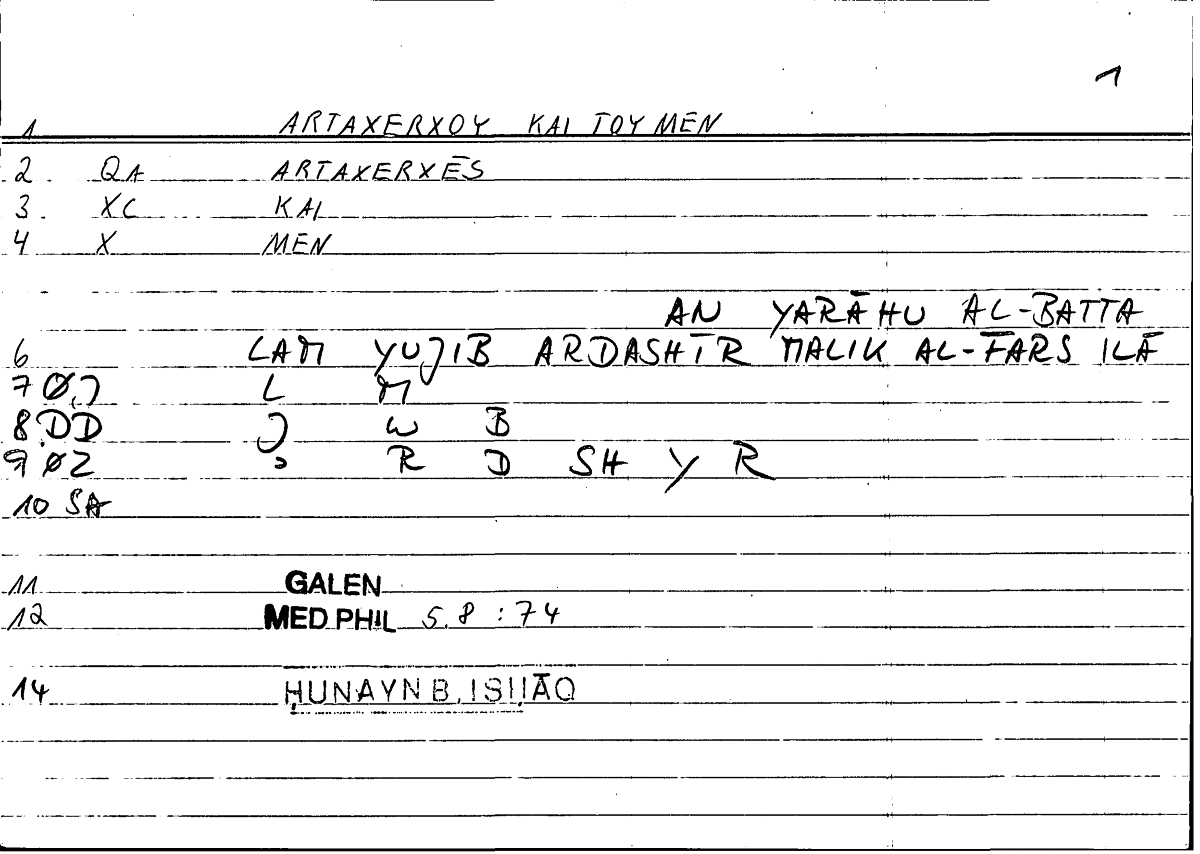 1
1 ARTAXERXOY KAI TOY MEN
2. QA ARTAXERXĒS
3. XC KAI
4 X MEN
AN YARĀHU AL-BATTA
6 LAM YUJIB ARDASHĪR MALIK AL-FARS ILĀ
7 Ø,J L M
8 DD J W B
9 ØZ ʾ R D SH Y R
10 SA
11 GALEN
12 MED PHIL 5.8 : 74
14 ḤUNAYN B. ISḤĀQ